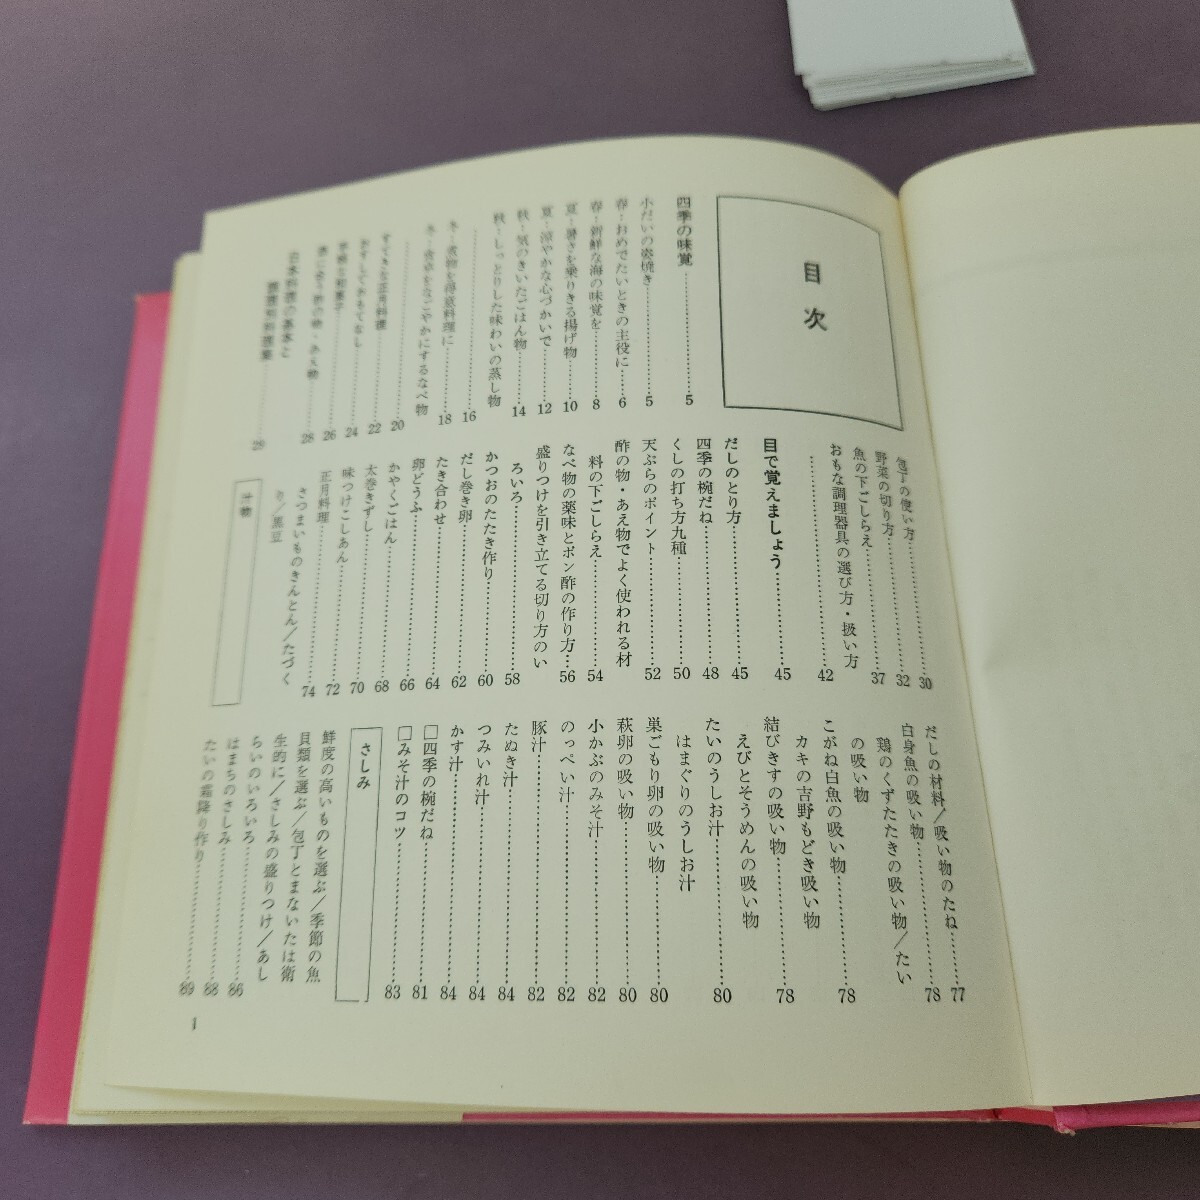 目次
四季の味覚………5
小だいの姿焼き………5
春…おめでたいときの主役に……6
春…新鮮な海の味覚を………8
夏…暑さを乗りきる揚げ物……10
夏…涼やかな心づかいで………12
秋…気のきいたごはん物………14
秋…しっとりした味わいの蒸し物
………16
冬…煮物を得意料理に………18
冬…食卓をなごやかにするなべ物
………20
すてきな正月料理………22
おすしでおもてなし………24
手軽な和菓子………26
酒に合う酢の物・あえ物………28
日本料理の基本と
………29
包丁の使い方………30
野菜の切り方………32
魚の下ごしらえ………37
おもな調理器具の選び方・扱い方
………42
目で覚えましょう………45
だしのとり方………45
四季の椀だね………48
くしの打ち方九種………50
天ぷらのポイント………52
酢の物・あえ物でよく使われる材
料の下ごしらえ………54
なべ物の薬味とポン酢の作り方…56
盛りつけを引き立てる切り方のい
ろいろ………58
かつおのたたき作り………60
だし巻き卵………62
たき合わせ………64
卵どうふ………66
かやくごはん………68
太巻きずし………70
味つけこしあん………72
正月料理………74
さつまいものきんとん/たづく
り/黒豆
汁物
だしの材料/吸い物のたね………77
白身魚の吸い物………78
鶏のくずたたきの吸い物/たい
の吸い物
こがね白魚の吸い物………78
カキの吉野もどき吸い物
結びきすの吸い物………78
えびとそうめんの吸い物
たいのうしお汁………80
はまぐりのうしお汁
巣ごもり卵の吸い物………80
萩卵の吸い物………80
小かぶのみそ汁………82
のっぺい汁………82
豚汁………82
たぬき汁………84
つみいれ汁………84
かす汁………84
□四季の椀だね………81
□みそ汁のコツ………83
さしみ
鮮度の高いものを選ぶ/季節の魚
貝類を選ぶ/包丁とまないたは衛
生的に/さしみの盛りつけ/あし
らいのいろいろ………86
はまちのさしみ………88
たいの霜降り作り………89
1